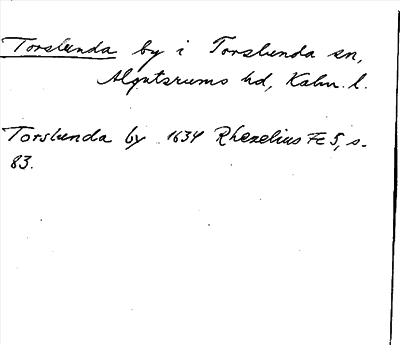 Torslunda by i Torslunda sn,
Algutsrums hd, Kalm. l.
Torslunda by 1634 Rhezelius FE 5, s.
83.